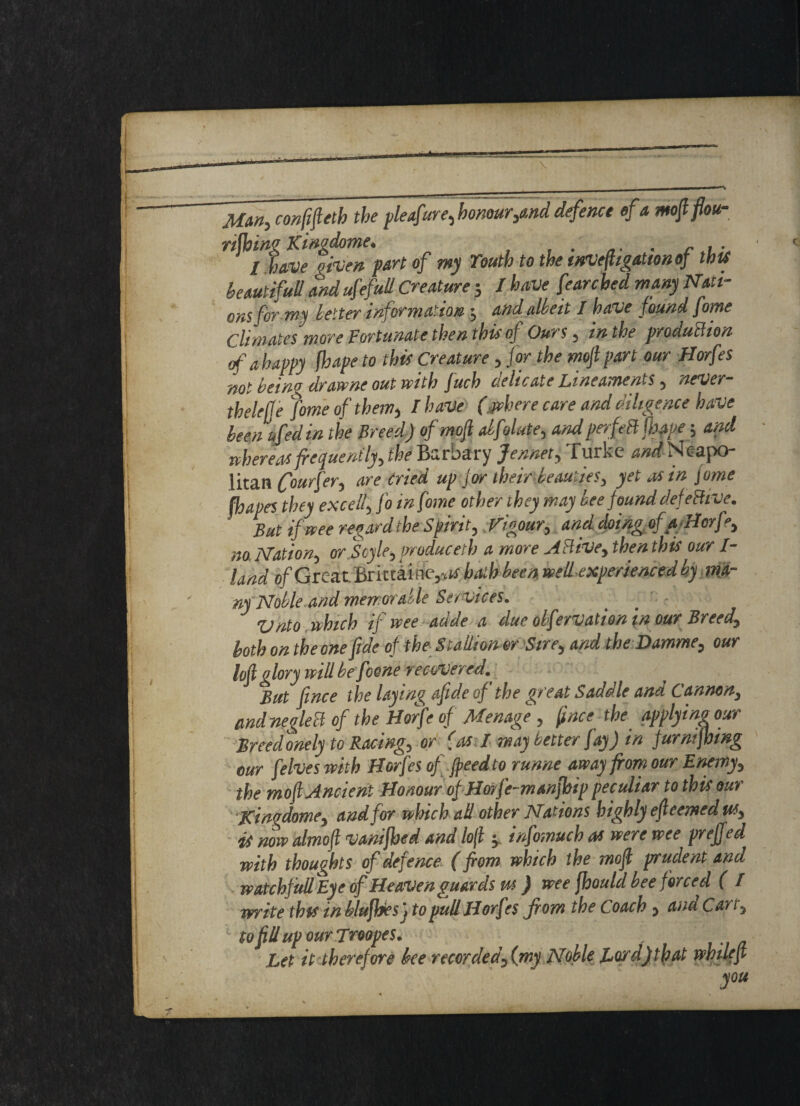 Man, confiſteth the pleaſure, honour, and defence of a moſt flou-
riſhing Kingdome.
I have given part of my Youth to the inveſtigation of this
beautifull and uſefull Creature; I have ſearched many Nati-
ons for my better information; and albeit I have found ſome
Climates more Fortunate then this of Ours, in the production
of a happy ſhape to this Creature, for the moſt part our Horſes
not being drawne out with ſuch delicate Lineaments, never-
theleſſe ſome of them, I have (where care and diligence have
been uſed in the Breed) of moſt abſolute, and perfect ſhape; and
whereas frequently, the Barbary Jennet, Turke and Neapo-
litan Courſer, are cried up for their beauties, yet as in ſome
ſhapes they excell, ſo in ſome other they may bee found defective.
But if wee regard the Spirit, Vigour, and doing of a Horſe,
no Nation, or Soyle, produceth a more Active, then this our I-
land of Great Brittaine, as hath been well experienced by ma-
ny Noble and memorable Services.
Vnto which if wee adde a due obſervation in our Breed,
both on the one ſide of the Stallion or Sire, and the Damme, our
loſt glory will be ſoone recovered.
But ſince the laying aſide of the great Saddle and Cannon,
and neglect of the Horſe of Menage, ſince the applying our
Breed onely to Racing, or (as I may better ſay) in furniſhing
our ſelves with Horſes of ſpeed to runne away from our Enemy,
the moſt Ancient Honour of Horſe-manſhip peculiar to this our
Kingdome, and for which all other Nations highly eſteemed us,
is now almoſt vaniſhed and loſt; inſomuch as were wee preſſed
with thoughts of defence (from which the moſt prudent and
watchfull Eye of Heaven guards us) wee ſhould bee forced (I
write this in bluſhes) to pull Horſes from the Coach, and Cart,
to fill up our Troopes.
Let it therefore bee recorded, (my Noble Lord) that whileſt
you